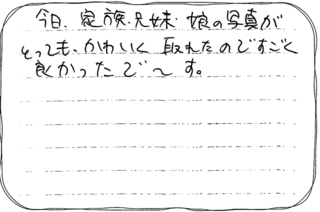 今日、家族、兄妹、娘の写真が
とっても、かわいく取れたのですごく
良かったで～す。